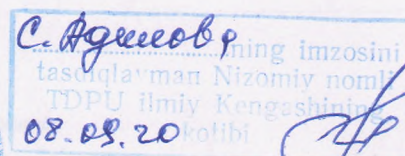 С. Адилова ning imzosini
tasdiqlayman Nizomiy nomli
TDPU ilmiy Kengashining
08.09.20 kotibi